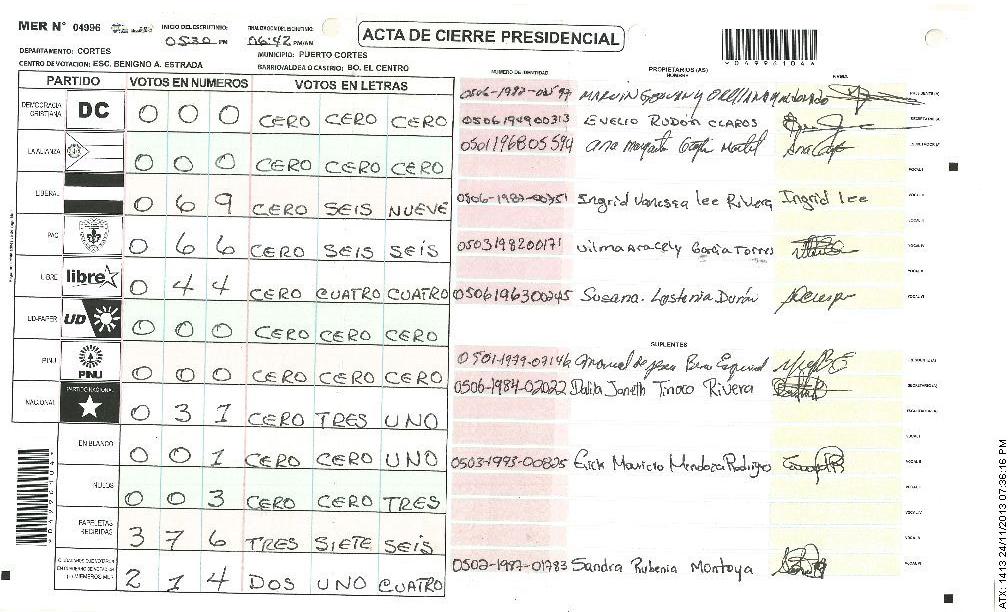 MER N° 04996
INICIO DEL ESCRUTINIO: 05:30 PM
FINALIZACION DEL ESCRUTINIO: 06:42 PM/AM
ACTA DE CIERRE PRESIDENCIAL
DEPARTAMENTO: CORTES
MUNICIPIO: PUERTO CORTES
CENTRO DE VOTACION: ESC. BENIGNO A. ESTRADA
BARRIO/ALDEA O CASERIO: BO. EL CENTRO
PARTIDO VOTOS EN NUMEROS VOTOS EN LETRAS
NUMERO DE IDENTIDAD PROPIETARIOS (AS) NOMBRE FIRMA
DEMOCRACIA CRISTIANA DC 0 0 0 CERO CERO CERO
LA ALIANZA 0 0 0 CERO CERO CERO
LIBERAL 0 6 9 CERO SEIS NUEVE
PAC 0 6 6 CERO SEIS SEIS
LIBRE libre 0 4 4 CERO CUATRO CUATRO
UD-FAPER UD 0 0 0 CERO CERO CERO
PINU PINU 0 0 0 CERO CERO CERO
NACIONAL PARTIDO NACIONAL 0 3 1 CERO TRES UNO
EN BLANCO 0 0 1 CERO CERO UNO
NULOS 0 0 3 CERO CERO TRES
PAPELETAS RECIBIDAS 3 7 6 TRES SIETE SEIS
2 1 4 DOS UNO CUATRO
PRESIDENTE (A)
0506194900313 EVELIO RUDON CLAROS SECRETARIO (A)
0501196805594
Ingrid Vanessa Lee Rivera Ingrid Lee
0503198200171 Vilma Aracely Garcia Torres
0506196300245 Susana Lastenia Durán
SUPLENTES
0501-1979-07146
0506-1984-02022 Dalila Janeth Tinoco Rivera
0503-1993-00825 Erick Mauricio Mendoza Rodrigo
0502-1987-01783 Sandra Rubenia Montoya
ATX: 1413 24/11/2013 07:36:16 PM